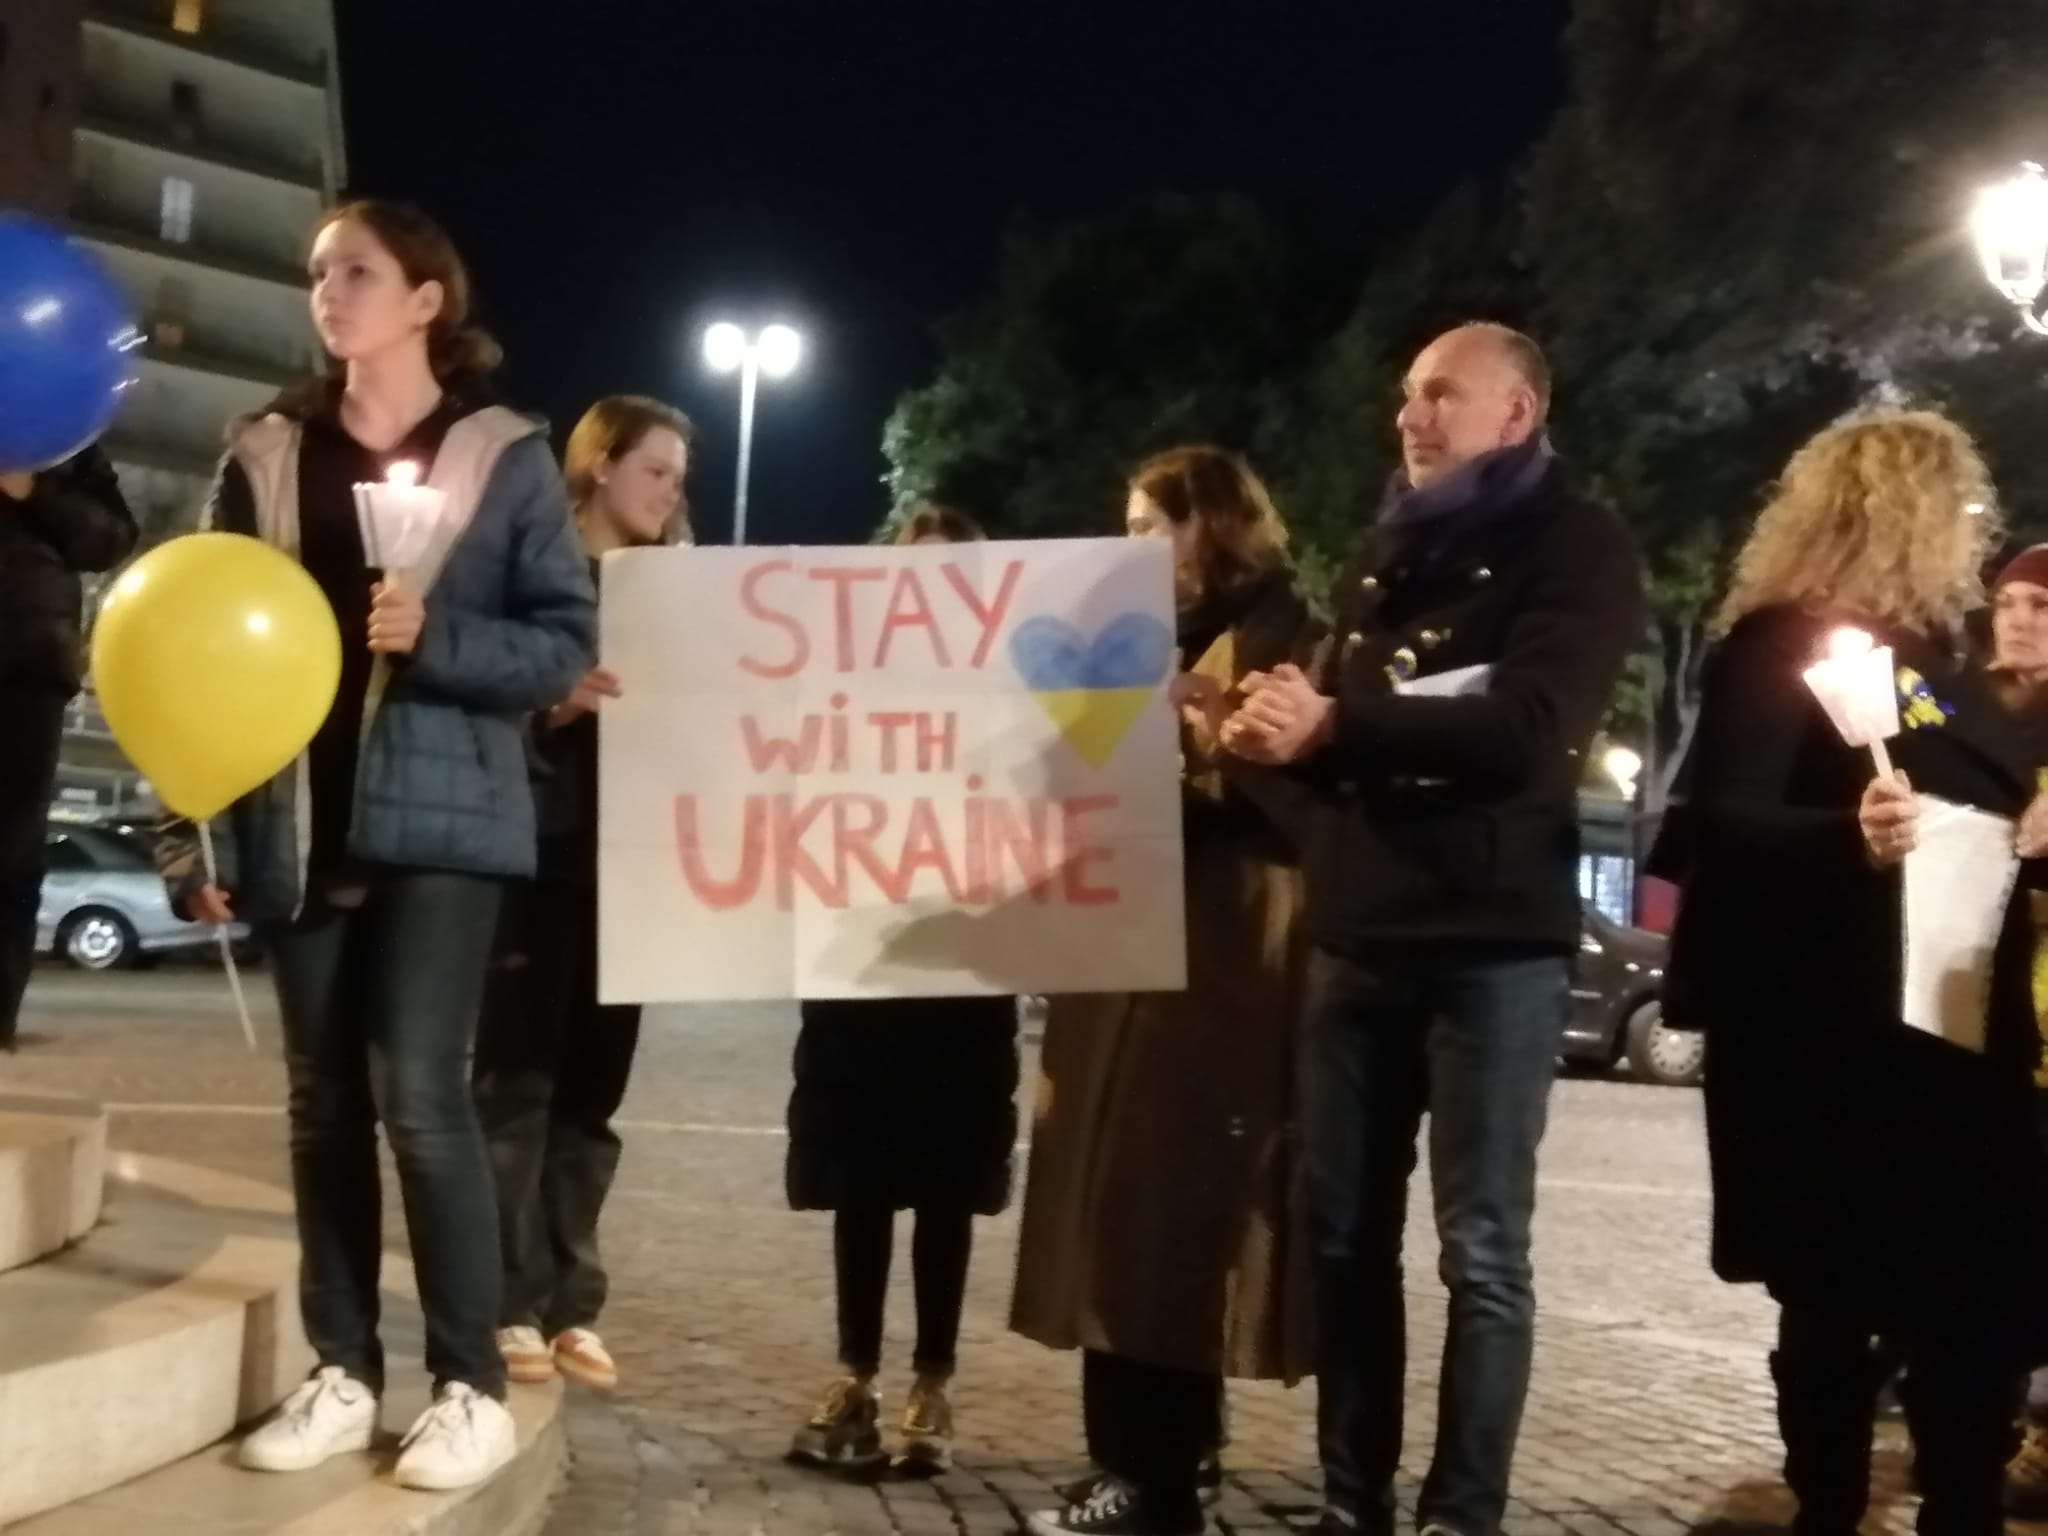 STAY
WiTH
UKRAiNE